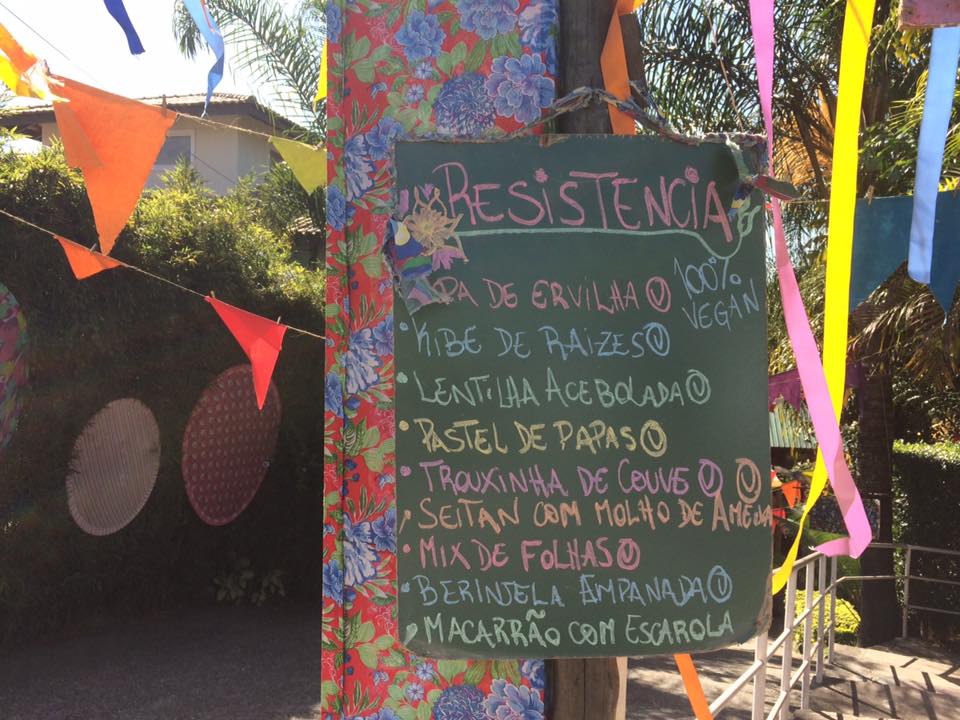 RESISTENCIA
100%
VEGAN
DE ERVILHA Ⓥ
KIBE DE RAIZES Ⓥ
LENTILHA ACEBOLADA Ⓥ
PASTEL DE PAPAS Ⓥ
TROUXINHA DE COUVE Ⓥ Ⓥ
SEITAN COM MOLHO DE AMEIXA
MIX DE FOLHAS Ⓥ
BERINJELA AMPANADA Ⓥ
MACARRÃO COM ESCAROLA